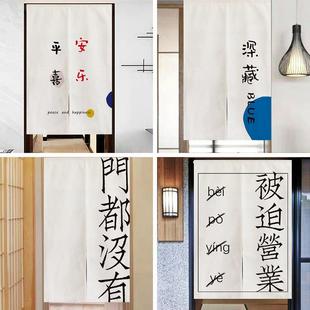 平安
喜乐
peace and happiness
深藏BLUE
門都沒有
bèi
pò
yíng
yè
被迫營業